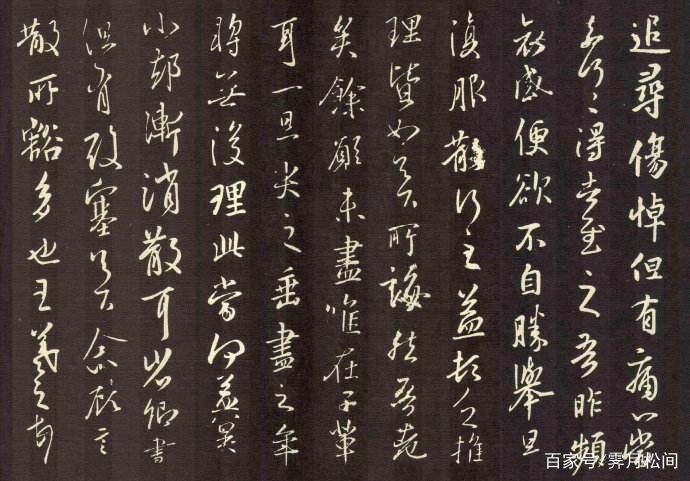 追尋傷悼但有痛心當
奈何〻得告慰之吾昨頻
哀感便欲不自勝舉旦
復服散行之益頓乏推
理皆如足下所誨然吾老
矣餘願未盡唯在子輩
耳一旦哭之垂盡之年
將無復理此當何益冀
小卻漸消散耳省卿書
但有酸塞足下念顧言
散所豁多也王羲之頓首
百家号/霁月松间